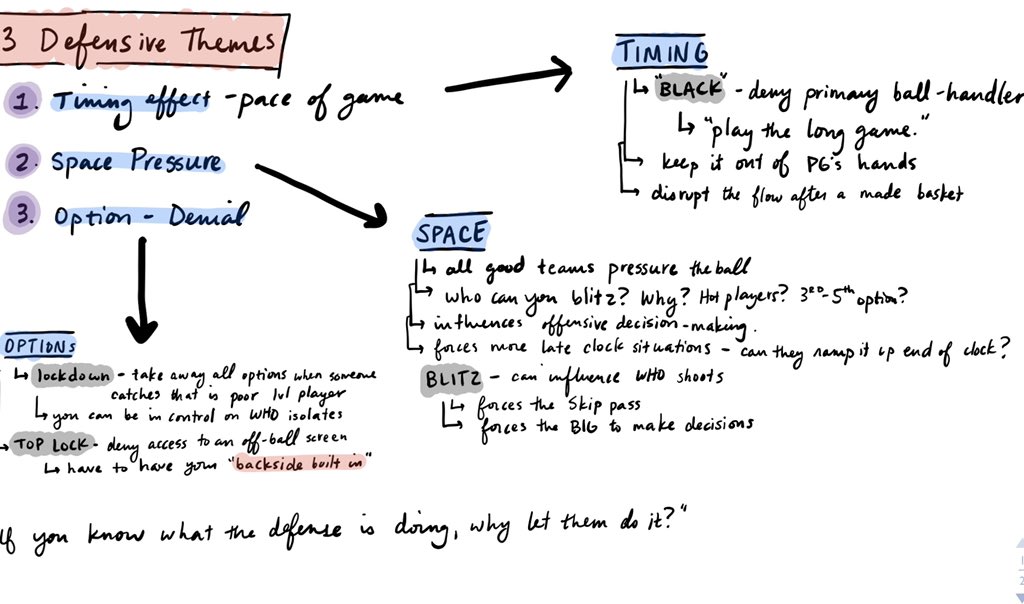 3 Defensive Themes
1. Timing effect - pace of game
2. Space Pressure
3. Option - Denial
TIMING
"BLACK" - deny primary ball-handler
"play the long game."
keep it out of PG's hands
disrupt the flow after a made basket
SPACE
all good teams pressure the ball
who can you blitz? Why? Hot players? 3RD-5th option?
influences offensive decision-making.
forces more late clock situations - can they ramp it up end of clock?
BLITZ - can influence WHO shoots
forces the Skip pass
forces the BIG to make decisions
OPTIONS
lockdown - take away all options when someone
catches that is poor 1v1 player
you can be in control on WHO isolates
TOP LOCK - deny access to an off-ball screen
have to have your "backside built in"
If you know what the defense is doing, why let them do it?"
1
2